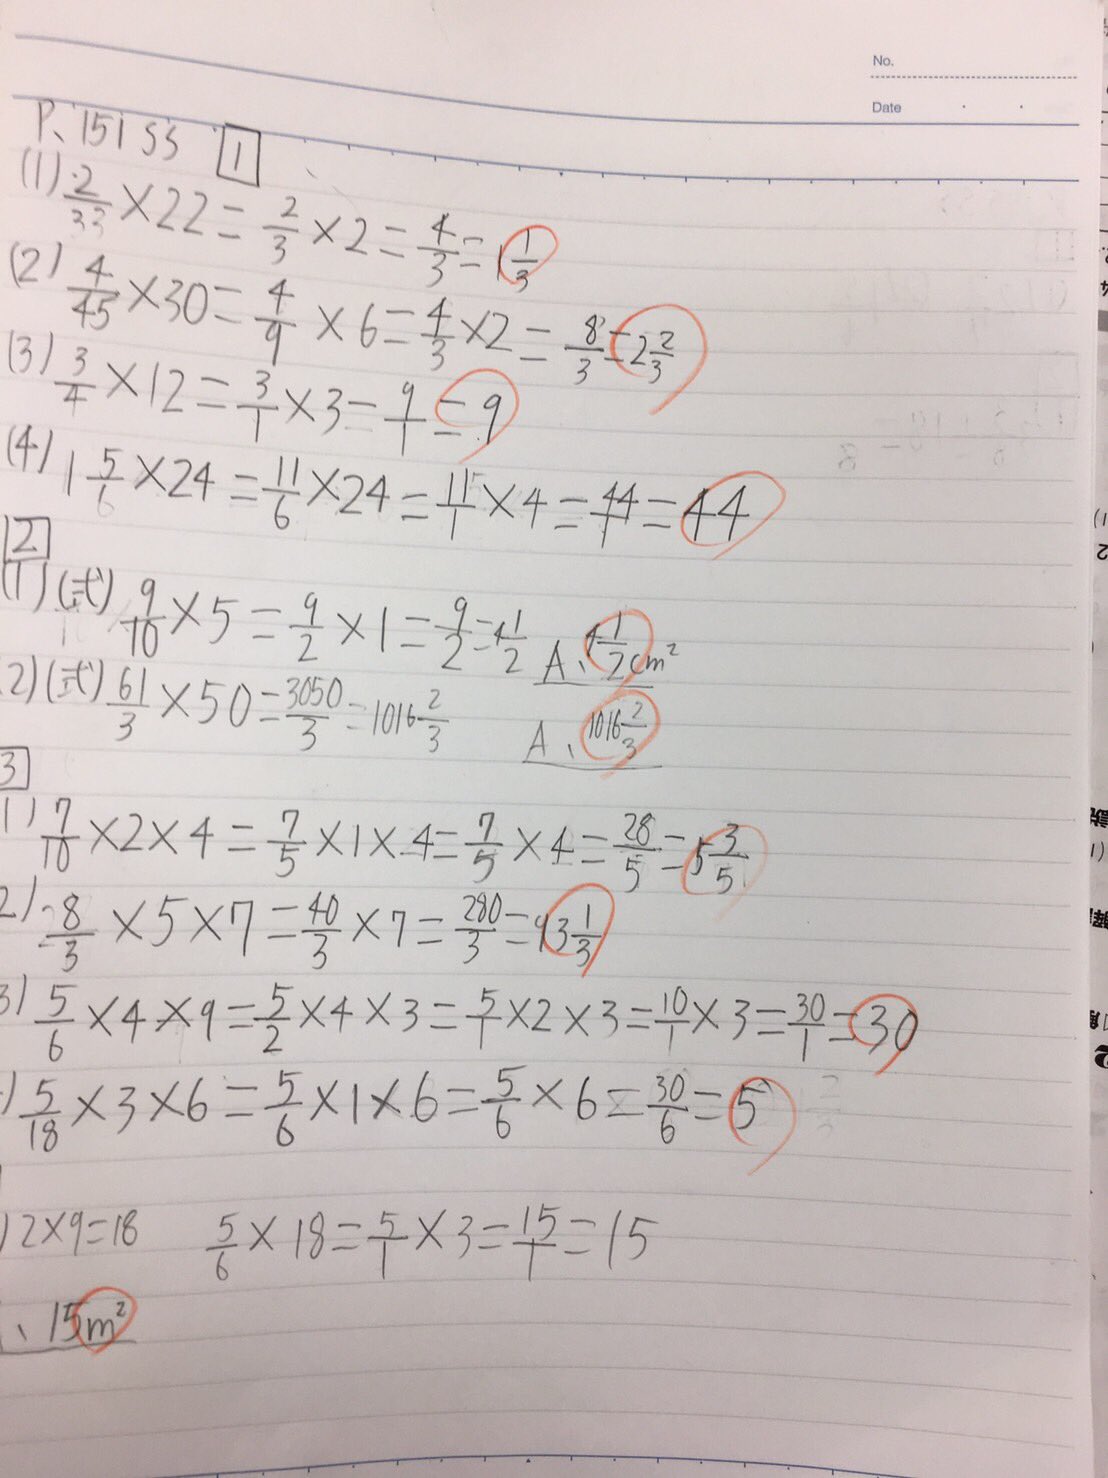 No.
Date
P、151 SS 1
(1) 2/33 × 22 = 2/3 × 2 = 4/3 = 1 1/3
(2) 4/45 × 30 = 4/9 × 6 = 4/3 × 2 = 8/3 = 2 2/3
(3) 3/4 × 12 = 3/1 × 3 = 9/1 = 9
(4) 1 5/6 × 24 = 11/6 × 24 = 11/1 × 4 = 44/1 = 44
2
(1) (式) 9/10 × 5 = 9/2 × 1 = 9/2 = 4 1/2 A、4 1/2 cm²
2) (式) 61/3 × 50 = 3050/3 = 1016 2/3 A、1016 2/3
3
1) 7/10 × 2 × 4 = 7/5 × 1 × 4 = 7/5 × 4 = 28/5 = 5 3/5
2) 8/3 × 5 × 7 = 40/3 × 7 = 280/3 = 93 1/3
3) 5/6 × 4 × 9 = 5/2 × 4 × 3 = 5/1 × 2 × 3 = 10/1 × 3 = 30/1 = 30
) 5/18 × 3 × 6 = 5/6 × 1 × 6 = 5/6 × 6 = 30/6 = 5
) 2×9=18 5/6 × 18 = 5/1 × 3 = 15/1 = 15
、15m²